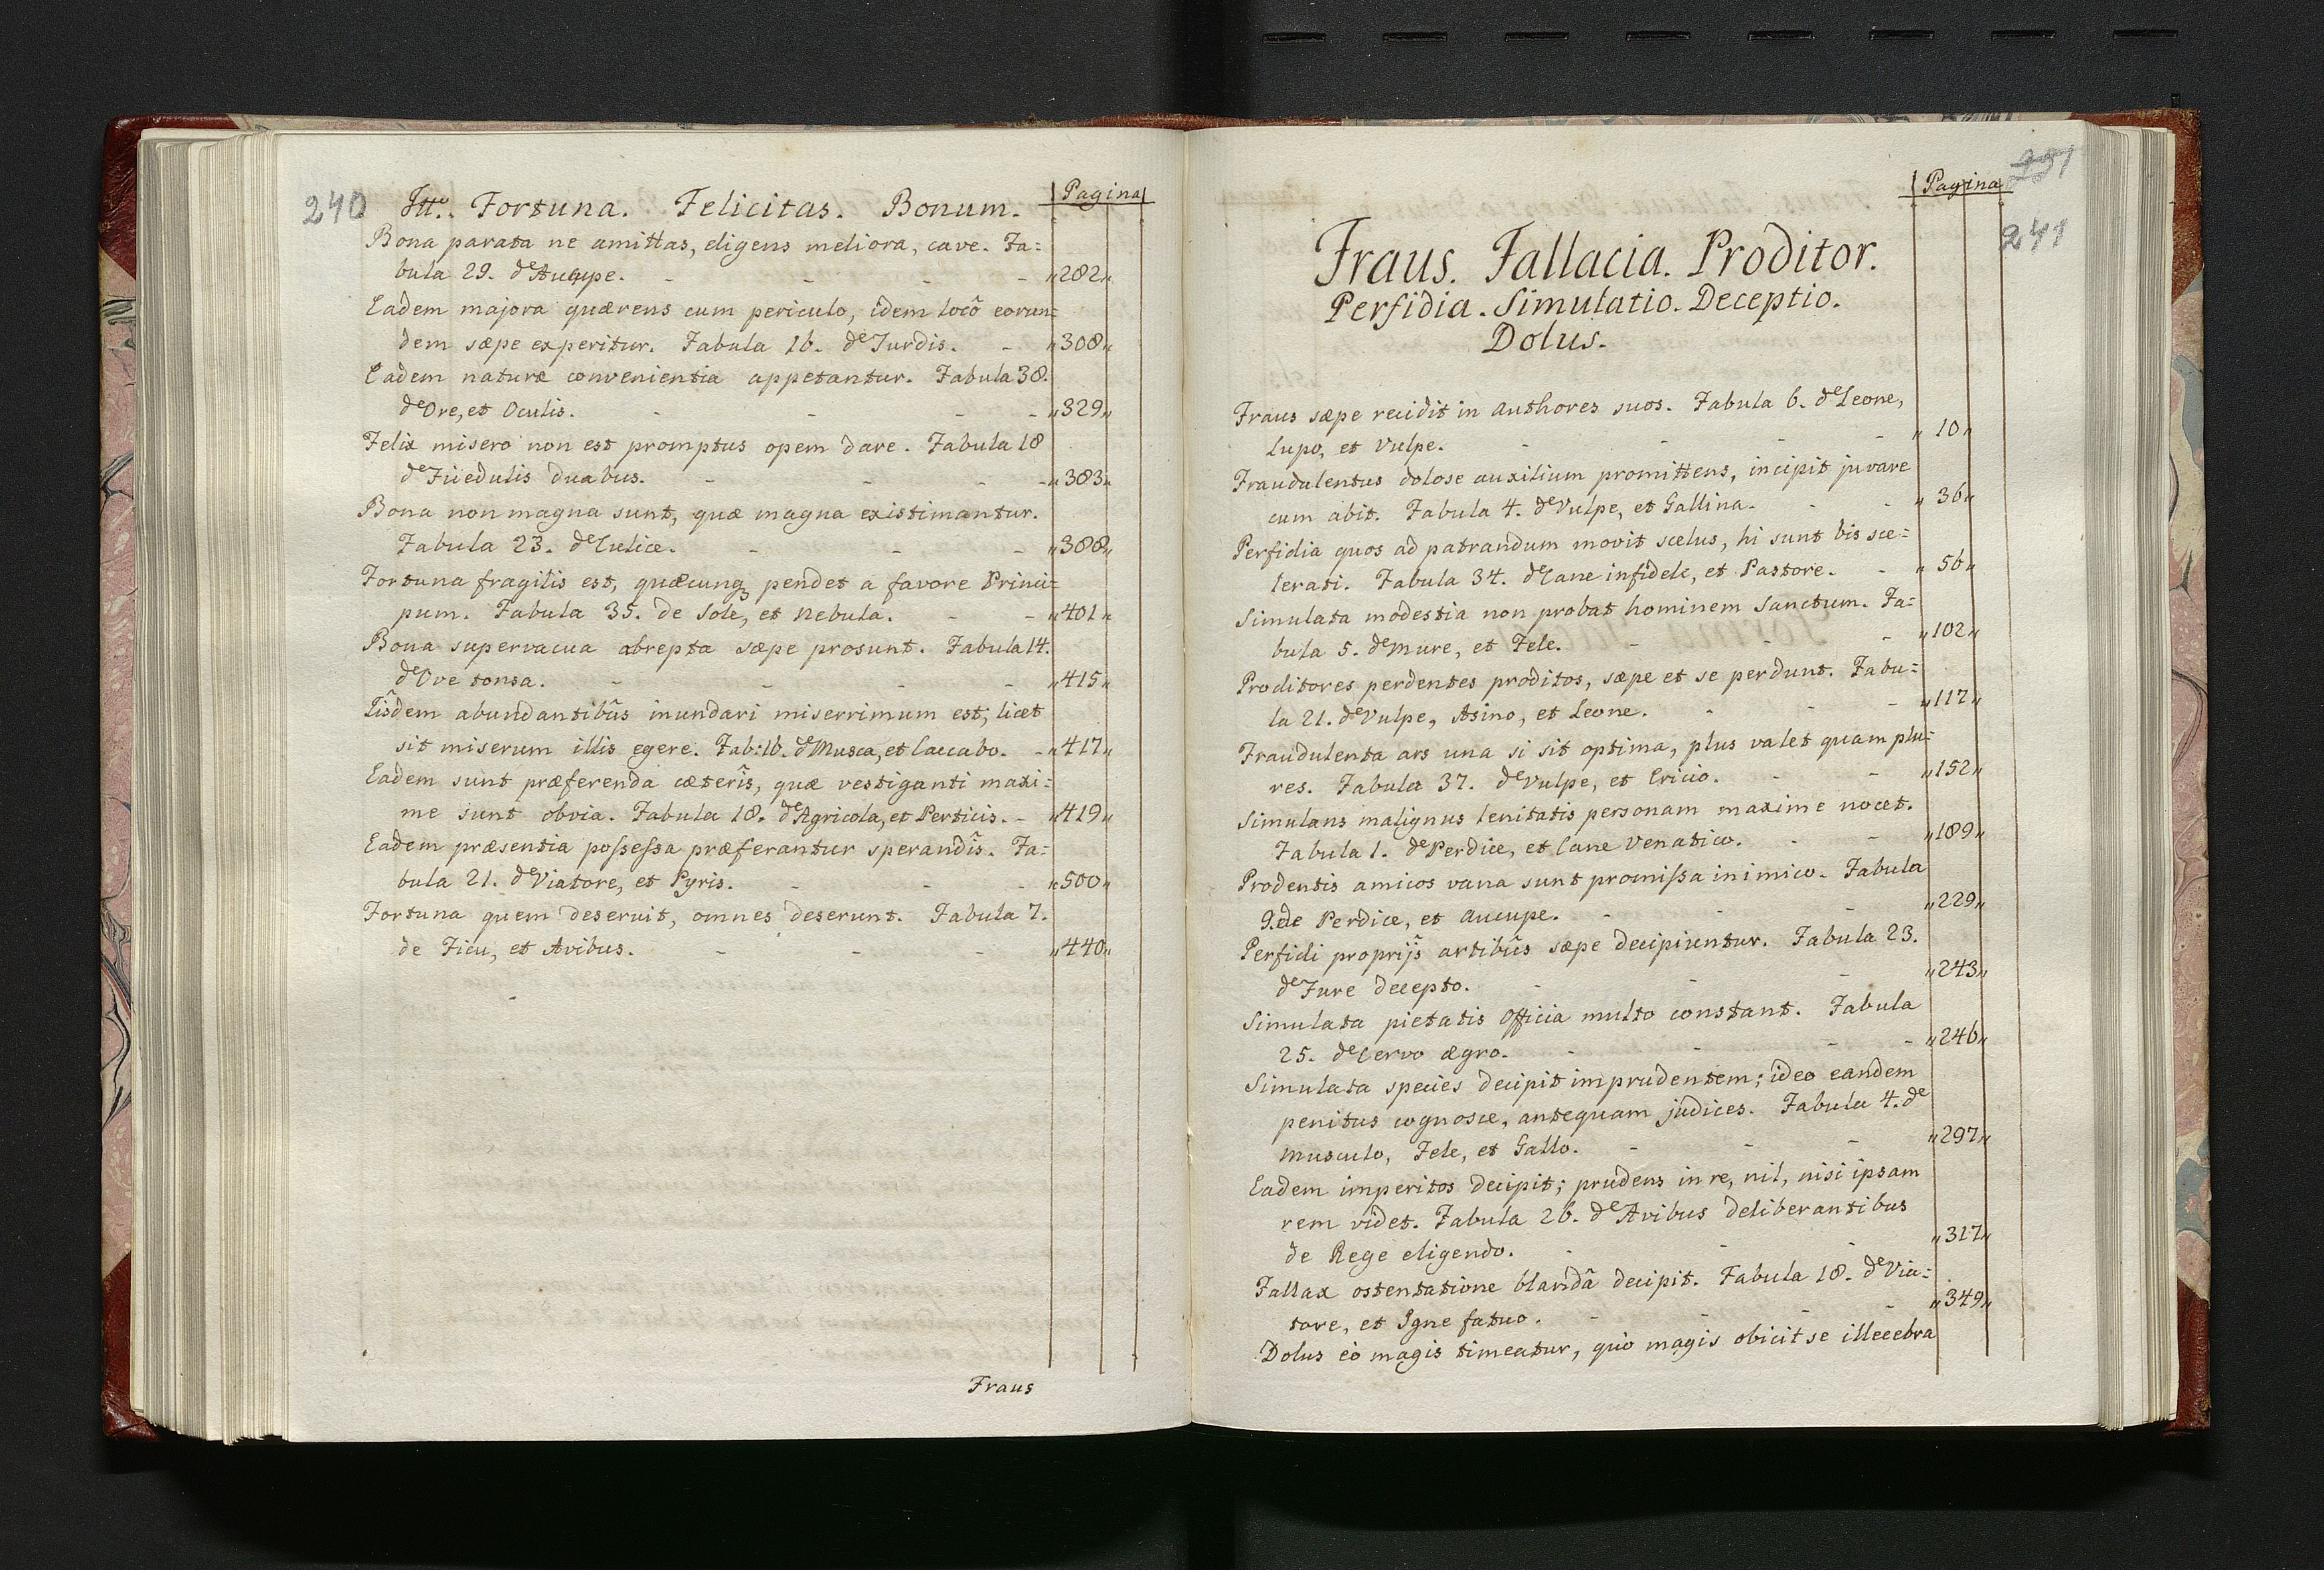 240
Itt. Fortuna. Felicitas. Bonum.
Pagina
Bona parata ne amittas, eligens meliora, cave. Fa=
bula 29. de Aucupe. - - - - „282„
Eadem majora quærens cum periculo, idem locô eorun=
dem sæpe experitur. Fabula 16. de Turdis. - „308„
Eadem naturæ convenientia appetantur. Fabula 38.
de Ore, et Oculis. - - - - „329„
Felix misero non est promptus opem dare. Fabula 18
de Ficedulis duabus. - - - - „383„
Bona non magna sunt, quæ magna existimantur.
Fabula 23. de Culice. - - - „388„
Fortuna fragilis est, quæcunqꝫ pendet a favore Princi=
pum. Fabula 35. de Sole, et Nebula. - - „401„
Bona supervacua abrepta sæpe prosunt. Fabula 14.
de Ove tonsa. - - - - „415„
Iisdem abundantibûs inundari miserrimum est, licet
sit miserum illis egere. Fab: 16. de Musca, et Caccabo. - „417„
Eadem sunt præferenda cæterîs, quæ vestiganti maxi=
me sunt obvia. Fabula 18. de Agricola, et Perticis. - „419„
Eadem præsentia poſseſsa præferantur sperandîs. Fa=
bula 21. de Viatore, et Pyris. - - - „500„
Fortuna quem deseruit, omnes deserunt. Fabula 7.
de Ficu, et Avibus. - - - „440„
Fraus
Pagina
251
241
Fraus. Fallacia. Proditor.
Perfidia. Simulatio. Deceptio.
Dolus.
Fraus sæpe recidit in Authores suos. Fabula 6. de Leone,
Lupo, et Vulpe. - - - - „10„
Fraudulentus dolose auxilium promittens, incipit juvare
cum abit. Fabula 4. de Vulpe, et Gallina. - - „36„
Perfidia quos ad patrandum movit scelus, hi sunt bis sce=
lerati. Fabula 34. de Cane infideli, et Pastore. - „56„
Simulata modestia non probat hominem Sanctum. Fa=
bula 5. de Mure, et Fele. - - - „102„
Proditores perdentes proditos, sæpe et se perdunt. Fabu=
la 21. de Vulpe, Asino, et Leone. - - - „117„
Fraudulenta ars una si sit optima, plus valet quam plu=
res. Fabula 37. de Vulpe, et Ericio. - - „152„
Simulans malignus lenitatis personam maxime nocet.
Fabula 1. de Perdice, et Cane Venatico. - - „189„
Prodentis amicos vana sunt promiſsa inimico. Fabula
9. de Perdice, et Aucupe. - - - „229„
Perfidi proprijs artibûs sæpe decipiuntur. Fabula 23.
de Fure decepto. - - - „243„
Simulata pietatis Officia multo constant. Fabula
25. de Cervo ægro. - - - - „246„
Simulata species decipit imprudentem; ideo eandem
penitus cognosce, antequam judices. Fabula 4. de
Musculo, Fele, et Gallo. - - - „297„
Eadem imperitos decipit; prudens in re, nil, nisi ipsam
rem videt. Fabula 26. de Avibus deliberantibus
de Rege eligendo. - - - „317„
Fallax ostentatione blandâ decipit. Fabula 18. de Via=
tore, et Igne fatuo. - - - - „349„
Dolus eò magis timeatur, quò magis obicit se illecebra